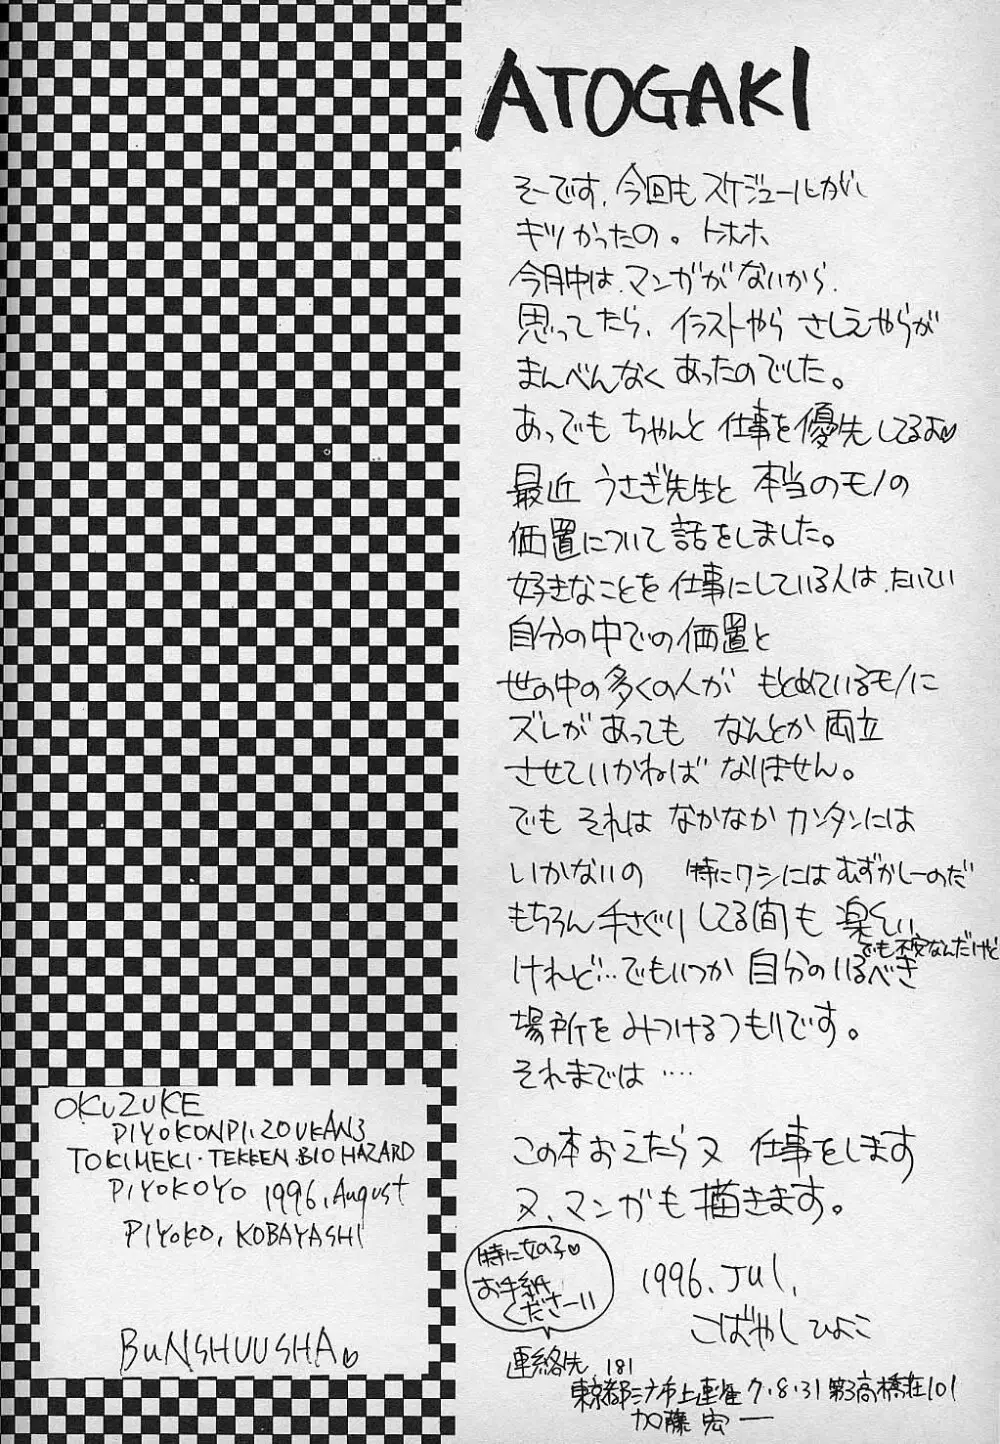 ATOGAKI
そーです、今回も スケジュールが
キツかったの。トホホ
今月中は、マンガがないから、
思ってたら、イラストやら さしえやらが
まんべんなく あったのでした。
あっでも ちゃんと 仕事を優先してるよ♡
最近 うさぎ先生と 本当のモノの
価置について 話をしました。
好きなことを 仕事にしている人は、たいてい
自分の中での価置と
世の中の多くの人が もとめているモノに
ズレがあっても なんとか 両立
させていかねば なりません。
でも それは なかなか カンタンには
いかないの 特にワシには むずかしーのだ
もちろん 手さぐりしてる間も 楽しい
でも不安なんだけど
けれど…でもいつか 自分のいるべき
場所を みつけるつもりです。
それまでは ‥‥
この本おえたら又 仕事をします
又、マンガも 描きます。
特に女の子♡
お手紙
くださーい
1996. Jul,
こばやし ひよこ
連絡先 181
東京都三鷹市上連雀 7・8・31 第3高橋荘101
加藤 宏一
OKUZUKE
PIYOKONPI・ZOUKAN3
TOKIMEKI・TEKKEN・BIO HAZARD
PIYOKOYO 1996, August
PIYOKO, KOBAYASHI
BUNSHUUSHA♡